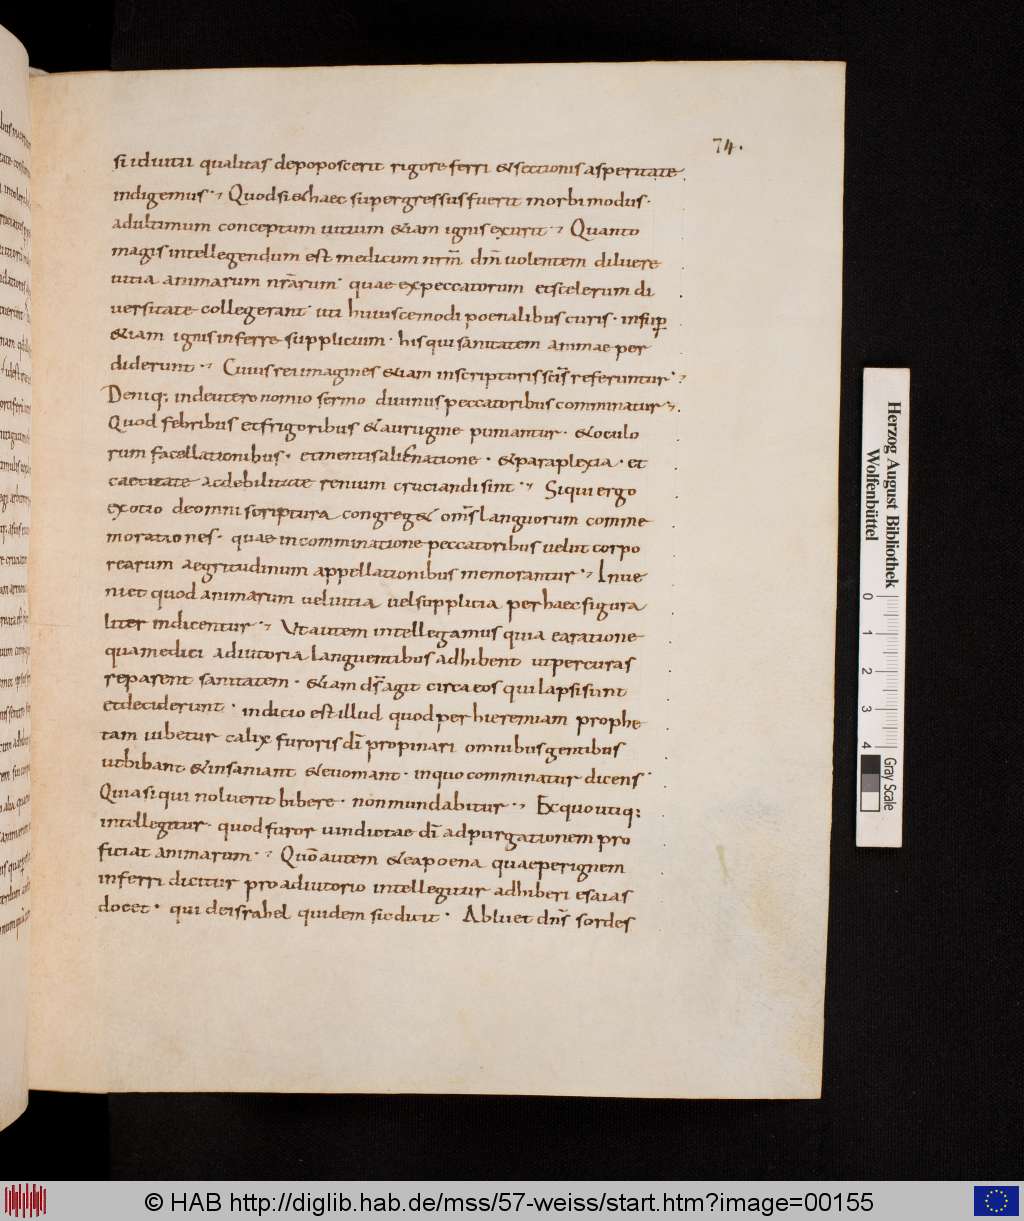 74.
si id uitii qualitas depoposcerit rigore ferri & sectionis asperitate
indigemus. Quod si & haec supergressus fuerit morbi modus.
ad ultimum conceptum uitium &iam ignis exurit. Quanto
magis intellegendum est medicum nr̄m dn̄m uolentem diluere
uitia animarum nr̄arum. quae ex peccatorum et scelerum di
uersitate collegerant. uti huiuscemodi poenalibus curis. insup̲
&iam ignis inferre supplicium. his qui sanitatem animae per
diderunt. Cuius rei imagines &iam in scriptoris sc̄is referuntur.
Deniq: in deuteronomio sermo diuinus peccatoribus comminatur.
Quod febribus et frigoribus & aurugine puniantur. & oculo
rum facellationibus. et mentis alienatione. & paraplexia. et
caecitate ac debilitate renium cruciandi sint. Si qui ergo
ex otio de omni scriptura congreg& om̄s languorum comme
morationes. quae in comminatione peccatoribus uelut corpo
rearum aegritudinum appellationibus memorantur. Inue
niet quod animarum uel uitia uel supplicia per haec figura
liter indicentur. Ut autem intellegamus quia ea ratione
qua medici adiutoria languentibus adhibent ut per curas
reparent sanitatem. &iam ds̄ agit circa eos qui lapsi sunt
et deciderunt. indicio est illud quod per hieremiam prophe
tam iubetur calix furoris dī propinari omnibus gentibus
ut bibant & insaniant & euomant. in quo comminatur dicens.
Quia si qui noluerit bibere. non mundabitur. Ex quo utiq:
intellegitur. quod furor uindictae dī ad purgationem pro
ficiat animarum. Quō autem & ea poena quae per ignem
inferri dicitur pro adiutorio intellegitur adhiberi esaias
docet. qui de israhel quidem sic dicit. Abluet dn̄s sordes
Herzog August Bibliothek
Wolfenbüttel
0 1 2 3 4
Gray Scale
© HAB http://diglib.hab.de/mss/57-weiss/start.htm?image=00155